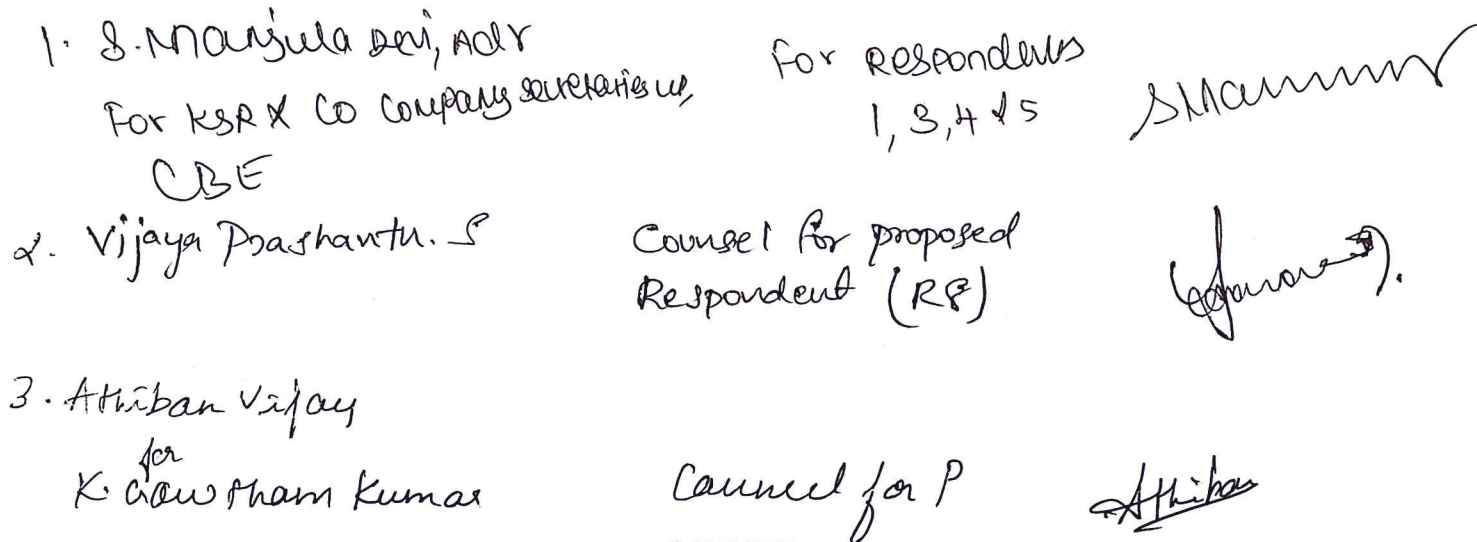 1. S. Manjula Devi, Adv
For KSR & Co Company Secretaries LLP,
CBE
For Respondents
1, 3, 4 & 5
2. Vijaya Prashanth. S
Counsel for proposed
Respondent (R8)
3. Athiban Vijay
for
K. Gowtham Kumar
Counsel for P
Athiban